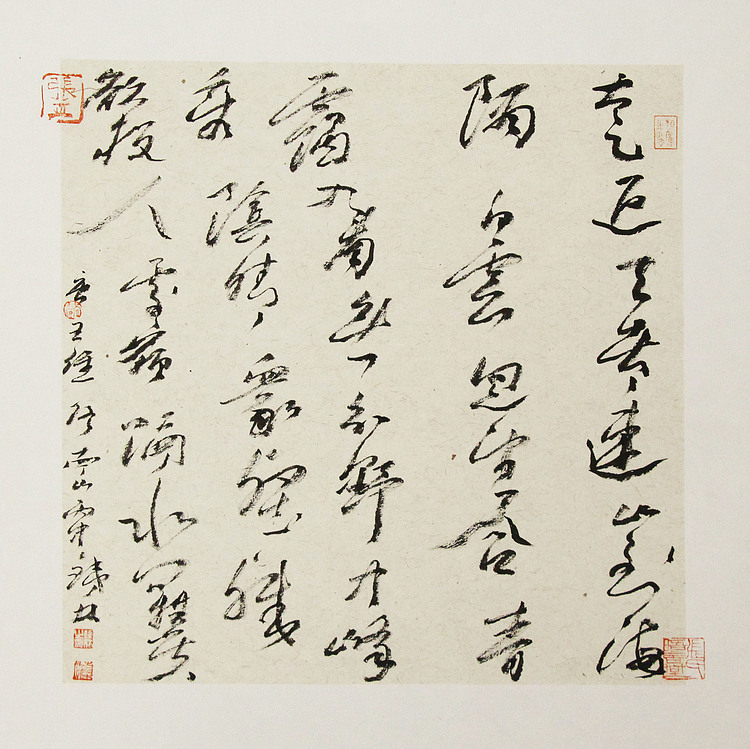 太乙近天都連山到海
隅白雲回望合青
靄入看無分野中峰
變陰晴衆壑殊
欲投人處宿隔水問樵夫
王維 鐵林